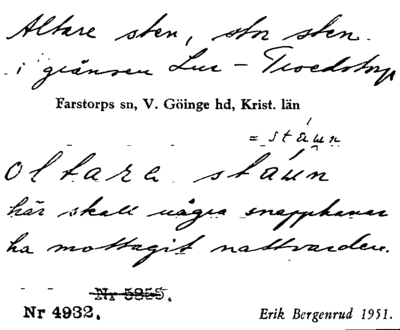 Altare sten, stor sten
i gränsen Lur – Troedstorp
Farstorps sn, V. Göinge hd, Krist. län
= stáu̯n
oltara stáu̯n
här skall några snapphanar
ha mottagit nattvarden.
Nr 5855.
Nr 4932.
Erik Bergenrud 1951.